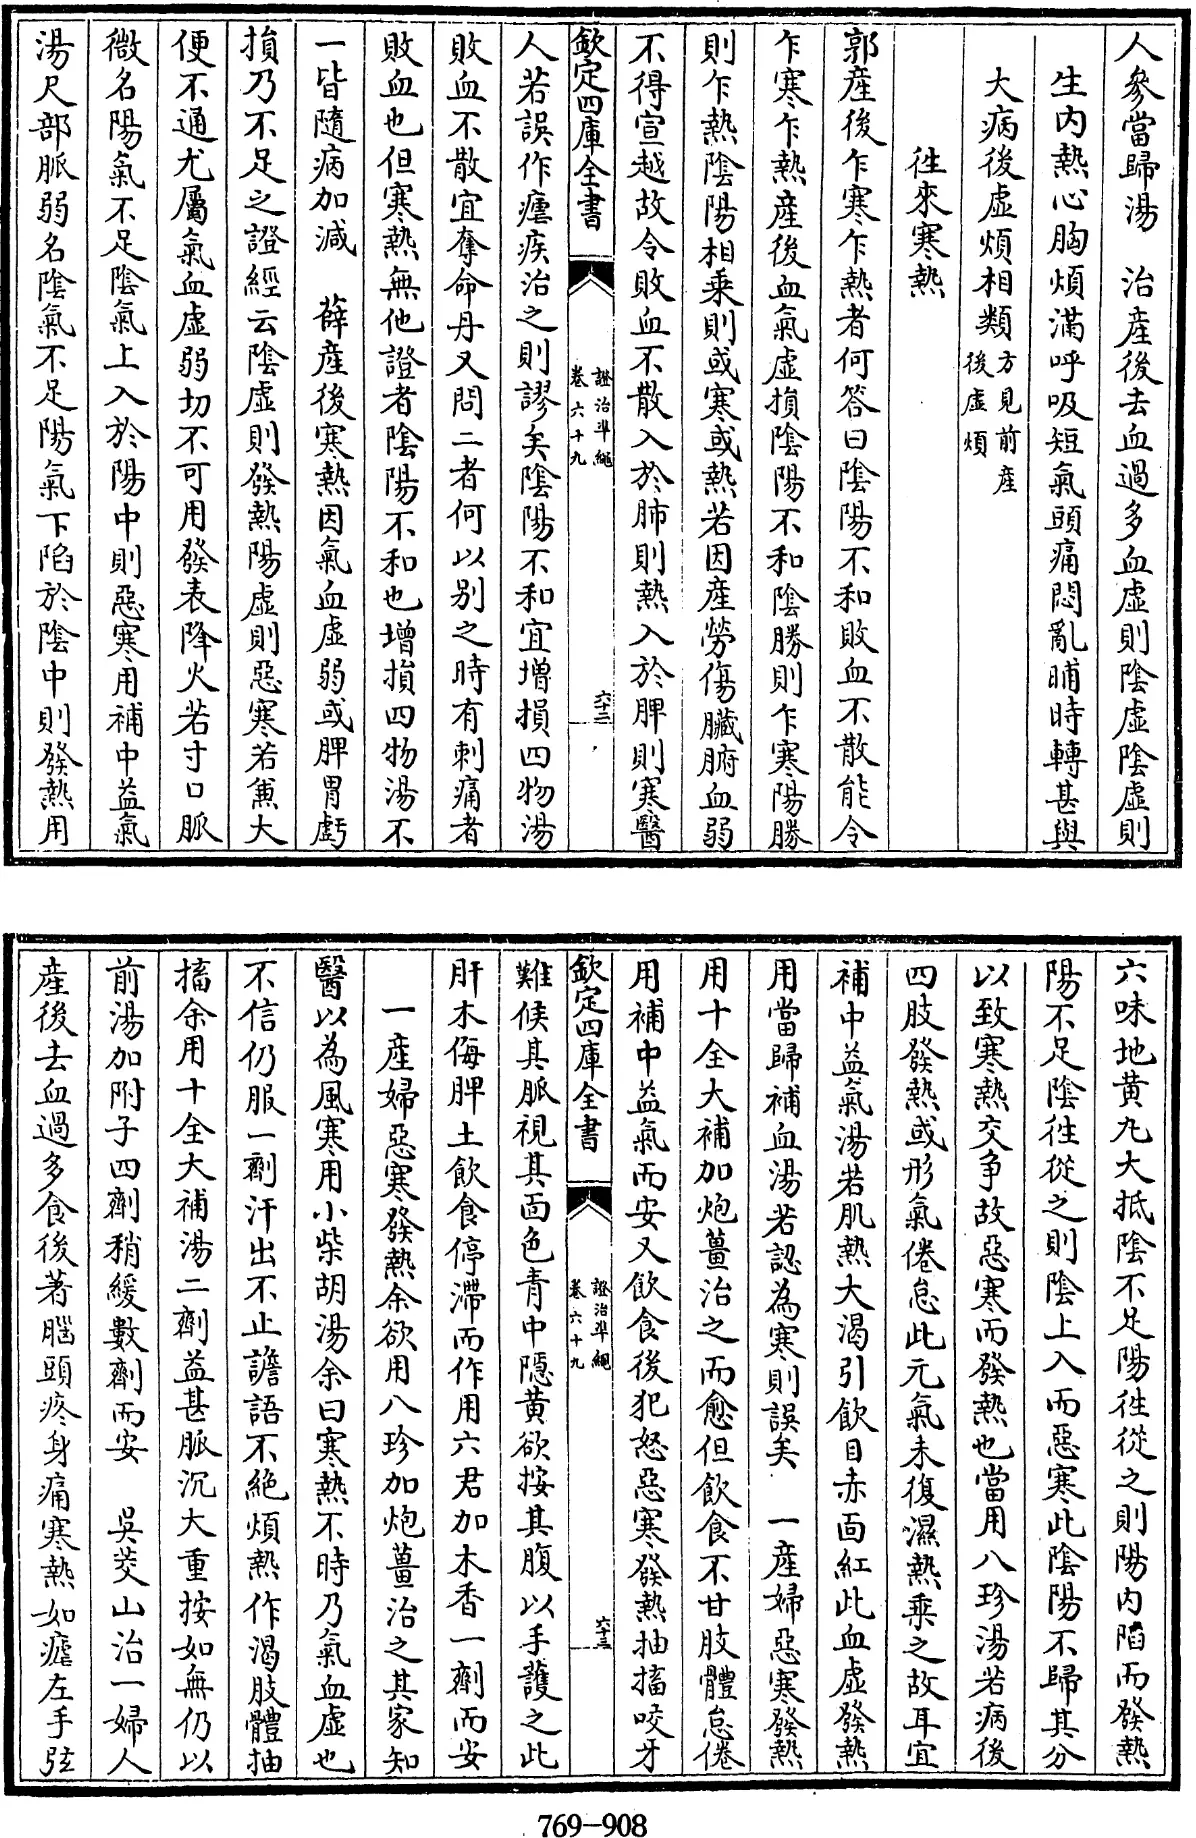 人參當歸湯　治產後去血過多血虛則陰虛陰虛則
生内熱心胸煩滿呼吸短氣頭痛悶亂晡時轉甚與
大病後虛煩相類方見前產後虛煩
徃來寒熱
郭產後乍寒乍熱者何答曰陰陽不和敗血不散能令
乍寒乍熱產後血氣虛損陰陽不和陰勝則乍寒陽勝
則乍熱陰陽相乘則或寒或熱若因產勞傷臟腑血弱
不得宣越故令敗血不散入於肺則熱入於脾則寒醫
欽定四庫全書
證治準繩
卷六十九
六十二
人若誤作瘧疾治之則謬矣陰陽不和宜增損四物湯
敗血不散宜奪命丹又問二者何以别之時有刺痛者
敗血也但寒熱無他證者陰陽不和也增損四物湯不
一皆隨病加減　薛產後寒熱因氣血虛弱或脾胃虧
損乃不足之證經云陰虛則發熱陽虛則惡寒若兼大
便不通尤屬氣血虛弱切不可用發表降火若寸口脈
微名陽氣不足陰氣上入於陽中則惡寒用補中益氣
湯尺部脈弱名陰氣不足陽氣下陷於陰中則發熱用
六味地黄丸大抵陰不足陽徃從之則陽内陷而發熱
陽不足陰徃從之則陰上入而惡寒此陰陽不歸其分
以致寒熱交争故惡寒而發熱也當用八珍湯若病後
四肢發熱或形氣倦怠此元氣未復濕熱乘之故耳宜
補中益氣湯若肌熱大渴引飲目赤面紅此血虛發熱
用當歸補血湯若認為寒則誤矣　一產婦惡寒發熱
用十全大補加炮薑治之而愈但飲食不甘肢體怠倦
用補中益氣而安又飲食後犯怒惡寒發熱抽搐咬牙
欽定四庫全書
證治準繩
卷六十九
六十三
難候其脈視其面色青中隠黄欲按其腹以手護之此
肝木侮脾土飲食停滯而作用六君加木香一劑而安
一產婦惡寒發熱余欲用八珍加炮薑治之其家知
醫以為風寒用小柴胡湯余曰寒熱不時乃氣血虛也
不信仍服一劑汗出不止譫語不絶煩熱作渴肢體抽
搐余用十全大補湯二劑益甚脈沉大重按如無仍以
前湯加附子四劑稍緩數劑而安　吳茭山治一婦人
產後去血過多食後著惱頭疼身痛寒熱如瘧左手弦
769-908